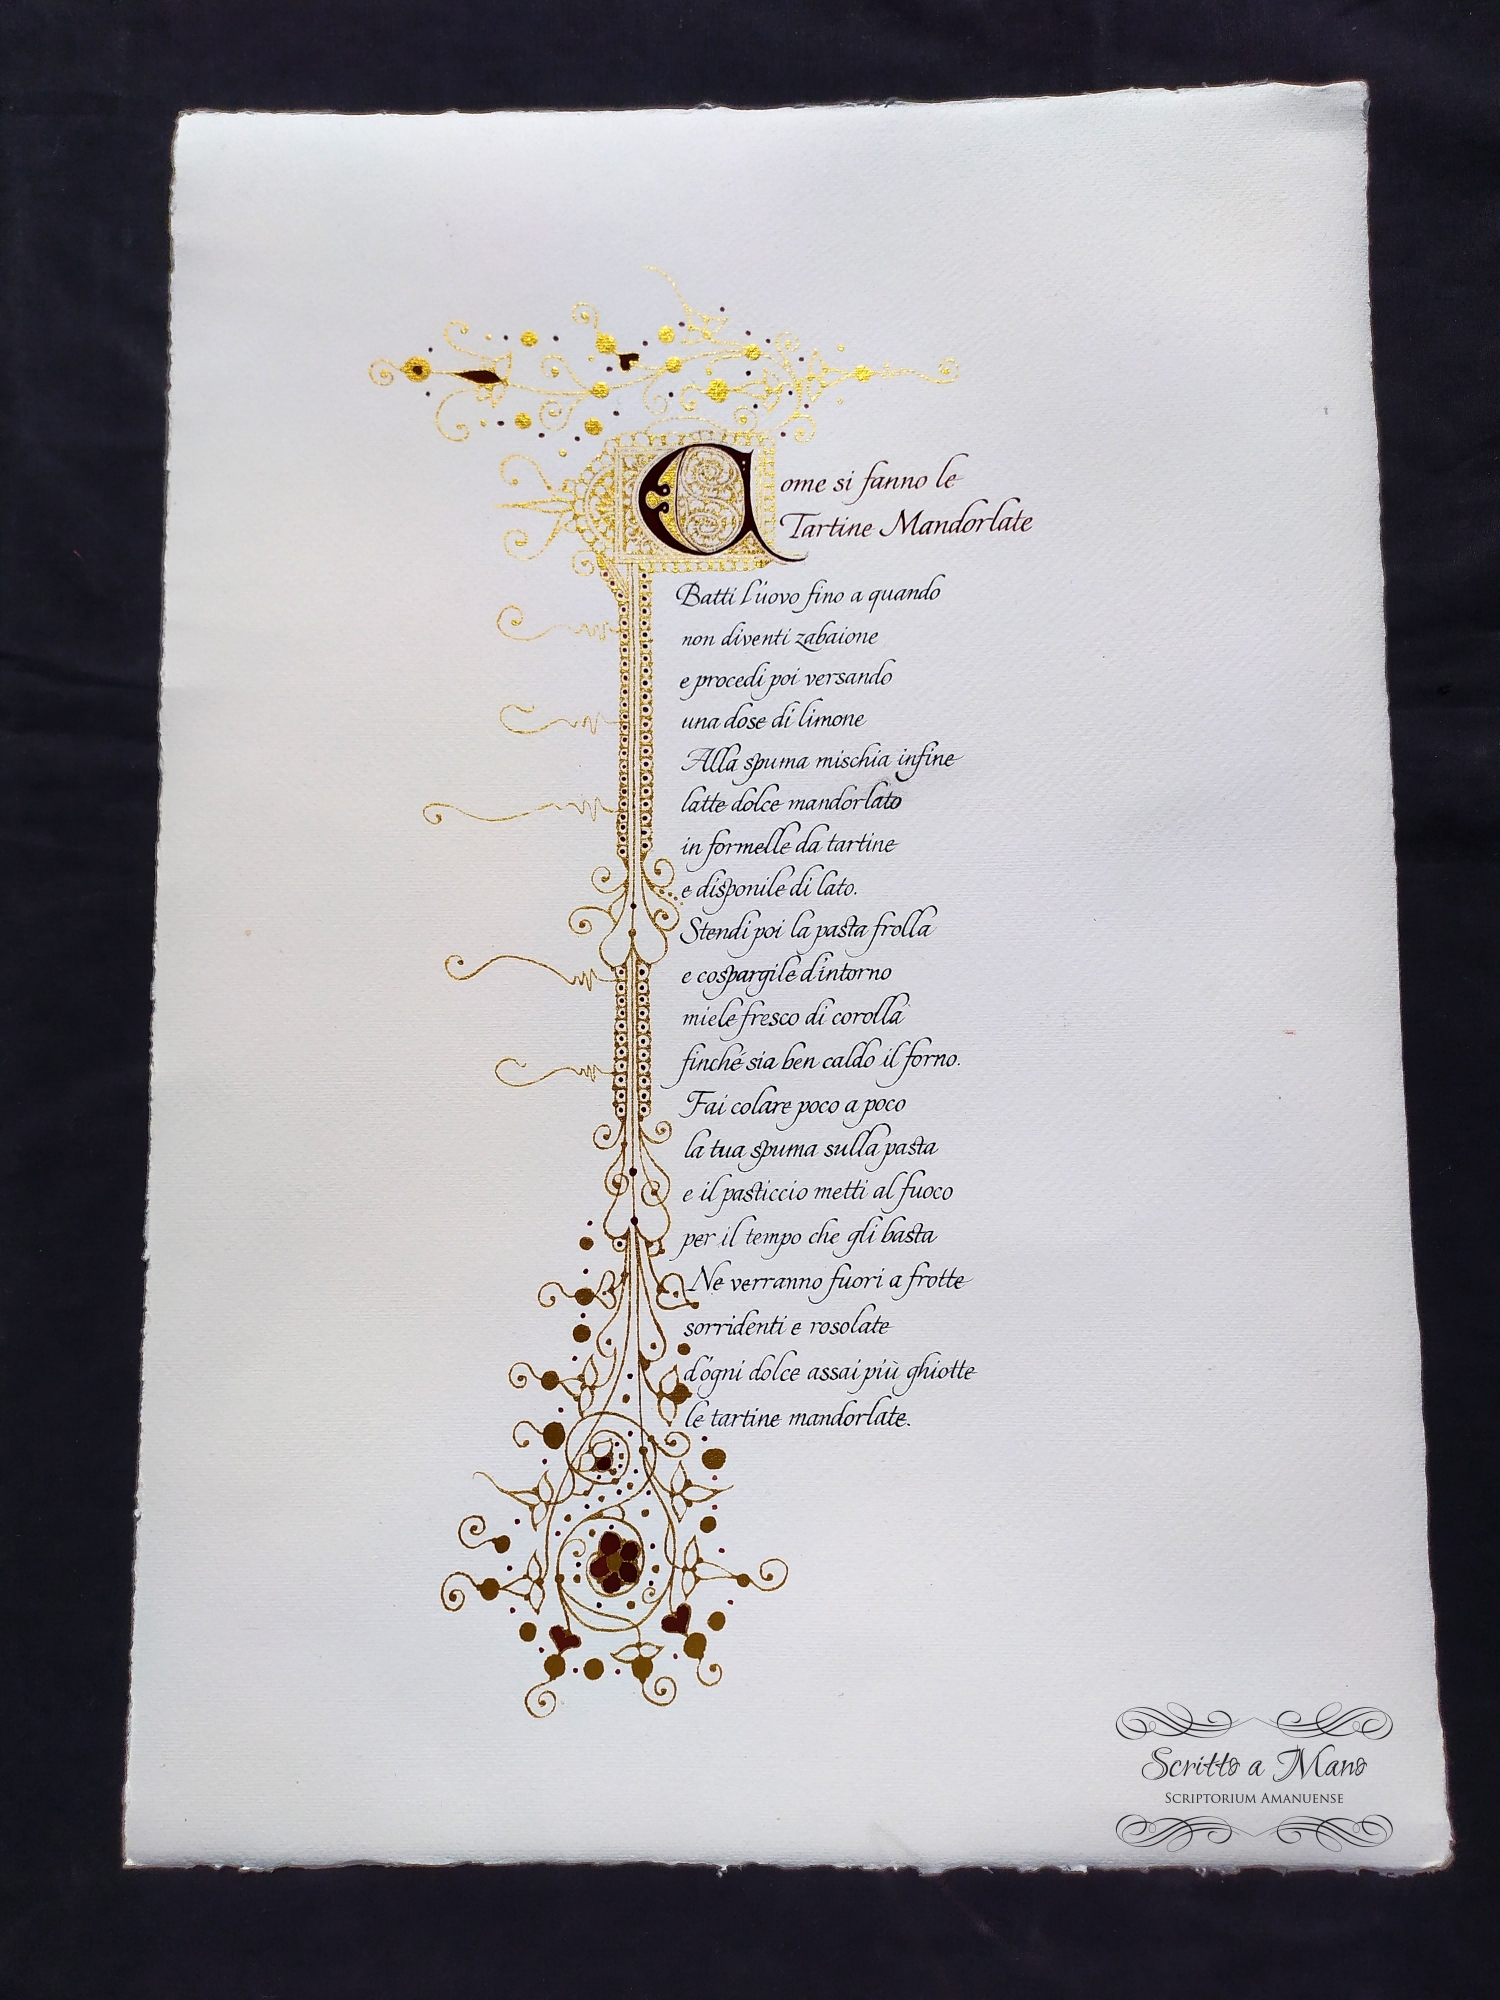 Come si fanno le
Tartine Mandorlate
Batti l'uovo fino a quando
non diventi zabaione
e procedi poi versando
una dose di limone
Alla spuma mischia infine
latte dolce mandorlato
in formelle da tartine
e disponile di lato.
Stendi poi la pasta frolla
e cospargile d'intorno
miele fresco di corolla
finché sia ben caldo il forno.
Fai colare poco a poco
la tua spuma sulla pasta
e il pasticcio metti al fuoco
per il tempo che gli basta
Ne verranno fuori a frotte
sorridenti e rosolate
d'ogni dolce assai più ghiotte
le tartine mandorlate.
Scritto a Mano
SCRIPTORIUM AMANUENSE